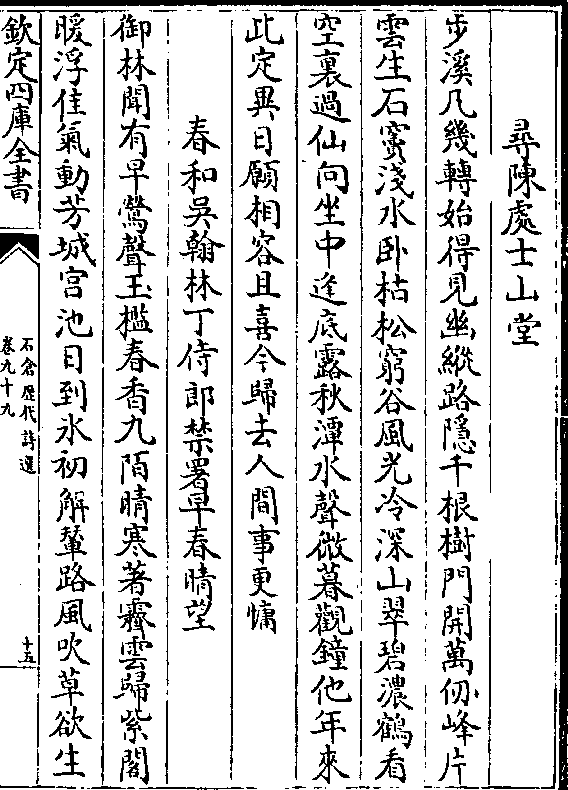 尋陳處士山堂
步溪凡幾轉始得見幽縱路隱千根樹門開萬仭峰片
雲生石竇淺水卧枯松窮谷風光冷深山翠碧濃鶴看
空裏過仙向坐中逢底露秋潭水聲微暮觀鐘他年來
此定異日願相容且喜今歸去人間事更慵
春和吳翰林丁侍郎禁署早春晴望
御林聞有早鶯聲玉檻春香九陌晴寒著霽雲歸紫閣
暖浮佳氣動芳城宫池日到氷初解輦路風吹草欲生
欽定四庫全書
石倉歷代詩選
卷九十九
十五